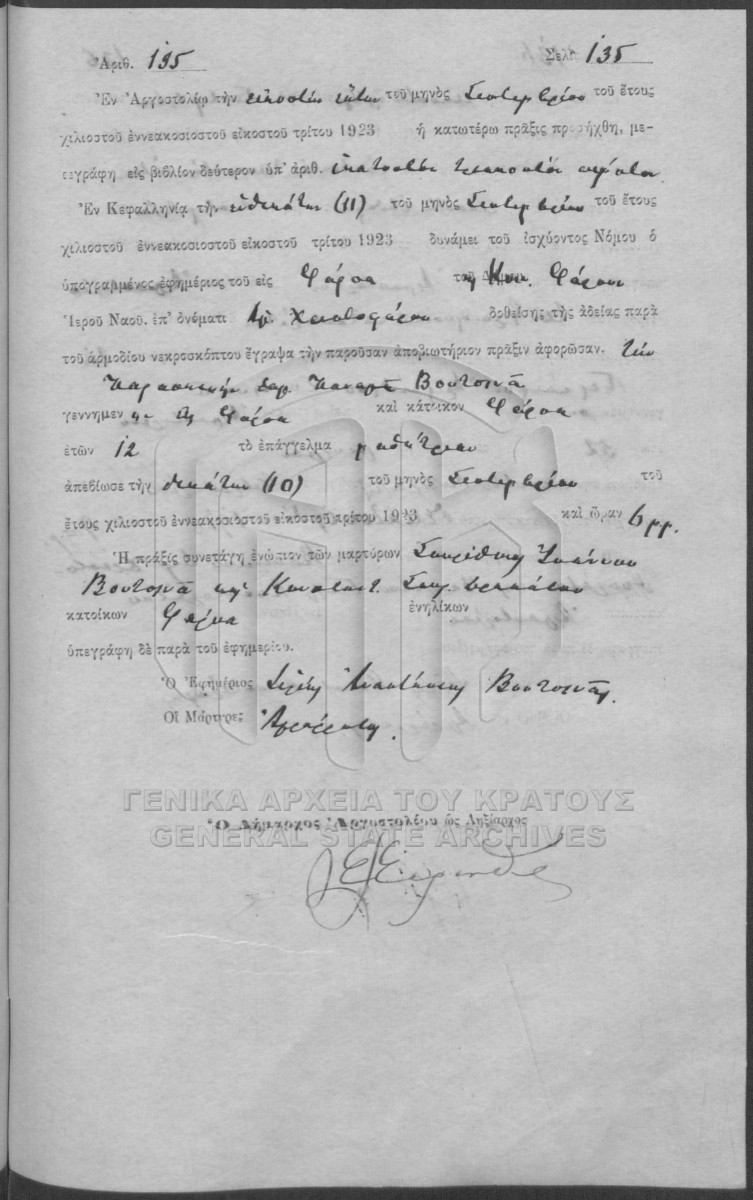 Ἀριθ. 135 Σελὶς 135
Ἐν Ἀργοστολίῳ τὴν εἰκοστὴν τοῦ μηνὸς Σεπτεμβρίου τοῦ ἔτους
χιλιοστοῦ ἐννεακοσιοστοῦ εἰκοστοῦ τρίτου 1923 ἡ κατωτέρω πρᾶξις προσήχθη, με-
τεγράφη εἰς βιβλίον δεύτερον ὑπ' ἀριθ. ἑκατοστὸν τριακοστὸν πέμπτον
Ἐν Κεφαλληνίᾳ τὴν ἑνδεκάτην (11) τοῦ μηνὸς Σεπτεμβρίου τοῦ ἔτους
χιλιοστοῦ ἐννεακοσιοστοῦ εἰκοστοῦ τρίτου 1923 δυνάμει τοῦ ἰσχύοντος Νόμου ὁ
ὑπογραμμένος ἐφημέριος τοῦ εἰς Φάρσα τοῦ Δήμου Κοιν. Φάρσων
Ἱεροῦ Ναοῦ. ἐπ' ὀνόματι Ἁγ. δοθείσης τῆς ἀδείας παρὰ
τοῦ ἁρμοδίου νεκροσκόπτου ἔγραψα τὴν παροῦσαν ἀποβιωτήριον πρᾶξιν ἀφορῶσαν. τὴν
Παρασκευὴν Βουτσινᾶ
γεννημεν ην εἰς Φάρσα καὶ κάτοικον Φάρσα
ἐτῶν 12 τὸ ἐπάγγελμα μαθήτριαν
ἀπεβίωσε τὴν δεκάτην (10) τοῦ μηνὸς Σεπτεμβρίου τοῦ
ἔτους χιλιοστοῦ ἐννεακοσιοστοῦ εἰκοστοῦ τρίτου 1923 καὶ ὥραν 6 μμ.
Ἡ πρᾶξις συνετάγη ἐνώπιον τῶν μαρτύρων Σπυρίδωνος Ἰωάννου
Βουτσινᾶ καὶ Κωνσταντ. Σπυρ.
κατοίκων Φάρσα ἐνηλίκων
ὑπεγράφη δὲ παρὰ τοῦ ἐφημερίου.
Ὁ Ἐφημέριος Ἀναστάσιος Βουτσινᾶς
Οἱ Μάρτυρες
ΓΕΝΙΚΑ ΑΡΧΕΙΑ ΤΟΥ ΚΡΑΤΟΥΣ
Ὁ Δήμαρχος Ἀργοστολίου ὡς Ληξίαρχος
GENERAL STATE ARCHIVES